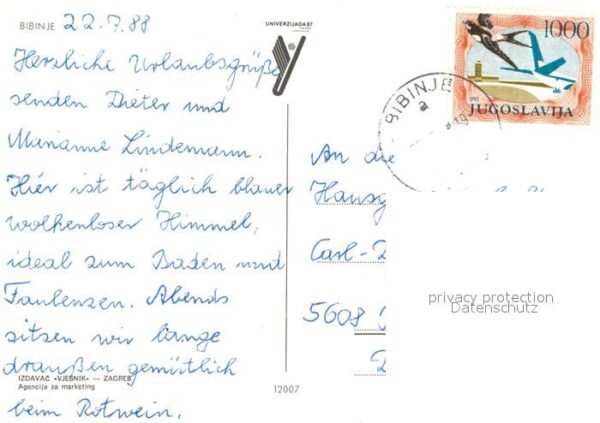 BIBINJE 22.7.88
Herzliche Urlaubsgrüße
senden Dieter und
Marianne Lindemann.
Hier ist täglich blauer
wolkenloser Himmel,
ideal zum Baden und
Faulenzen. Abends
sitzen wir lange
draußen gemütlich
beim Rotwein.
IZDAVAČ »VJESNIK« — ZAGREB
Agencija za marketing
12007
UNIVERZIJADA'87
1000
JUGOSLAVIJA
BIBINJE
a
An die
Hausg
Carl-
5608
privacy protection
Datenschutz